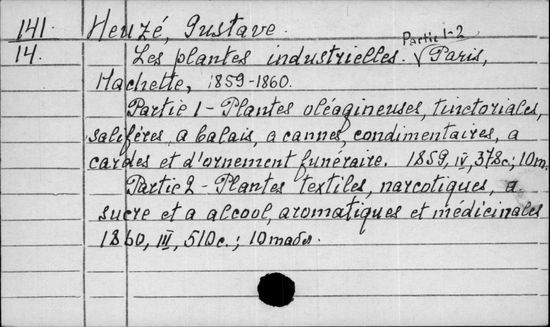 141. Heuzé, Gustave.
14. Les plantes industrielles. Partie 1-2 Paris,
Hachette, 1859-1860.
Partie 1 - Plantes oléagineuses, tinctoriales,
salifères, a balais, a cannes, condimentaires, a
cardes et d'ornement funéraire. 1859, IV, 378c.; 10m.
Partie 2 - Plantes textiles, narcotiques, a
sucre et a alcool, aromatiques et médicinales
1860, III, 510c.;